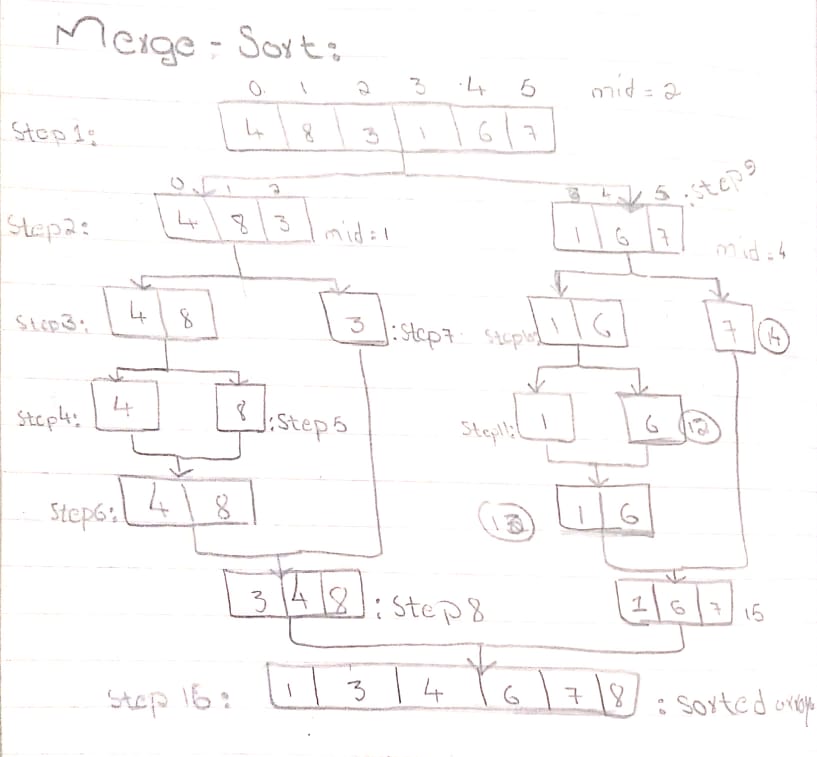 Merge - Sort:
0 1 2 3 4 5 mid = 2
Step 1: 4 8 3 1 6 7
0 1 2 3 4 5 : Step 9
Step2: 4 8 3 mid = 1 1 6 7 mid = 4
Step3: 4 8 3 : Step7 Step10: 1 6 7 14
Step4: 4 8 : Step 5 Step11: 1 6 12
Step6: 4 8 13 1 6
3 4 8 : Step 8 1 6 7 15
Step 16: 1 3 4 6 7 8 : sorted array